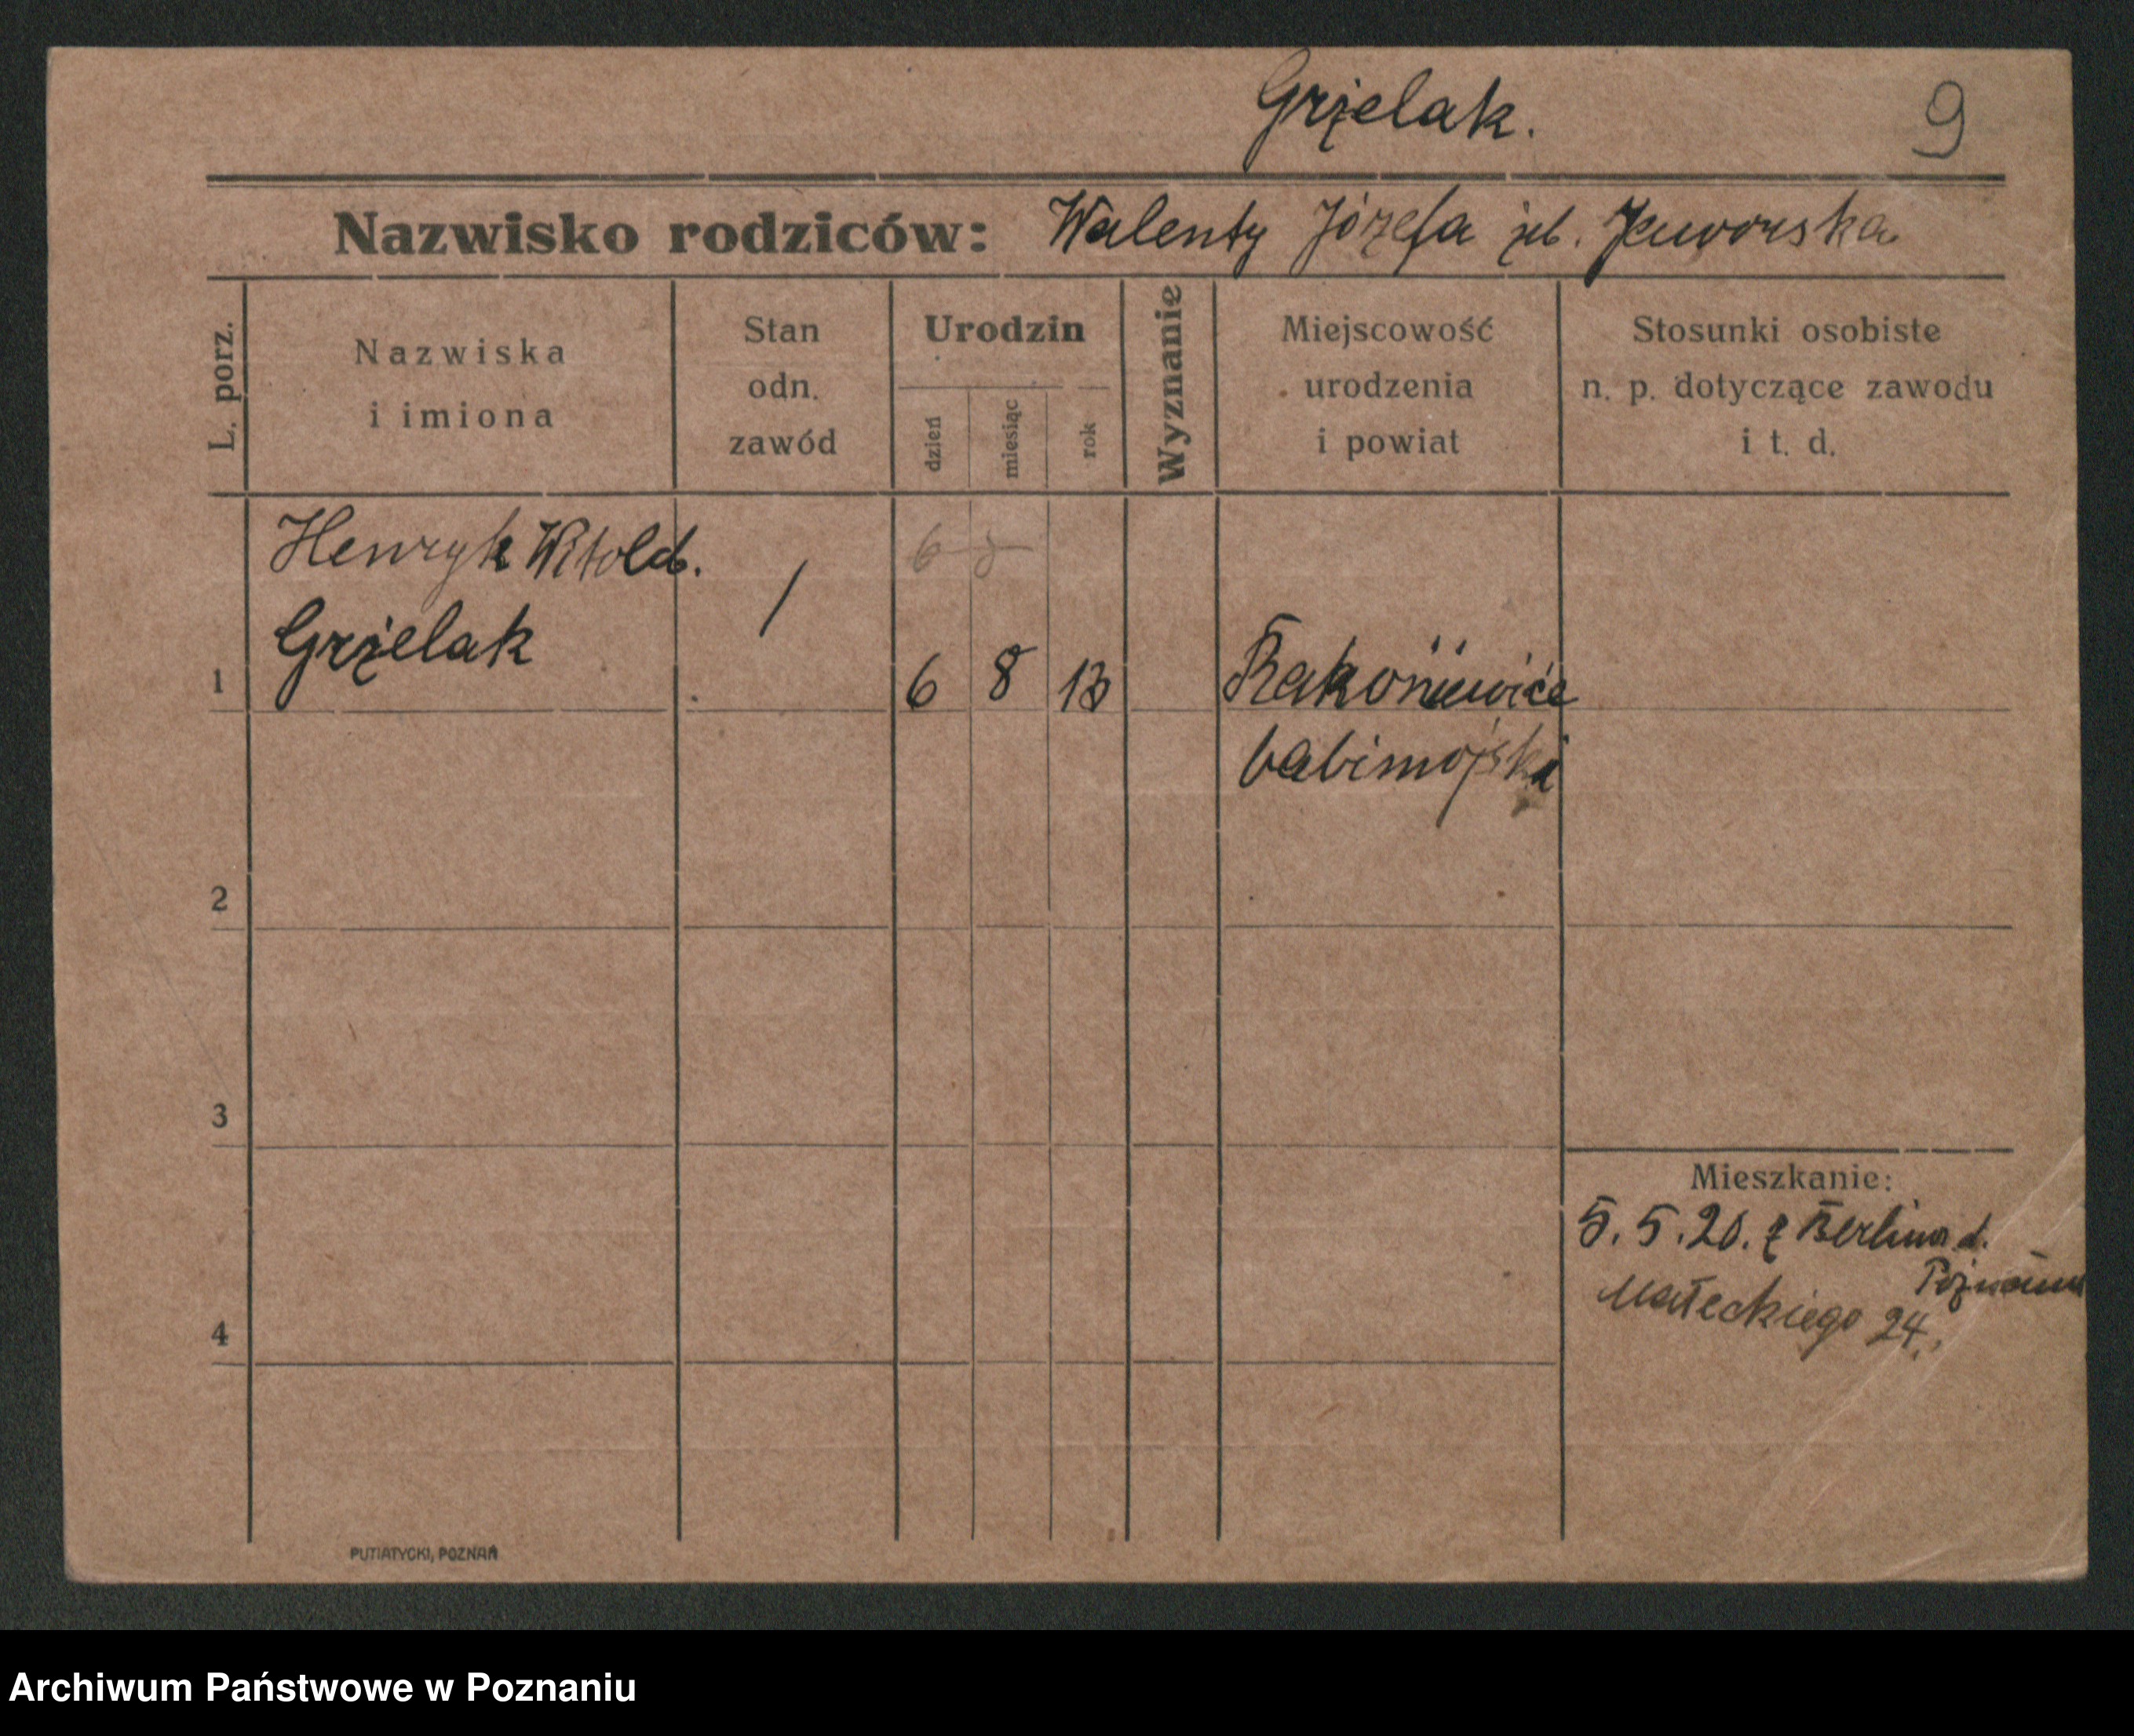 Grzelak.
9
Nazwisko rodziców: Walenty Józefa Jaworska
L. porz.
Nazwiska
i imiona
Stan
odn.
zawód
Urodzin
dzień
miesiąc
rok
Wyznanie
Miejscowość
urodzenia
i powiat
Stosunki osobiste
n. p. dotyczące zawodu
i t. d.
Henryk Witold.
6 8
Grzelak /
1
6 8 13 Rakoniewice
babimojski
2
3
4
Mieszkanie:
5.5.20. z Berlina d.
Poznania
Małeckiego 24.
PUTIATYCKI, POZNAŃ
Archiwum Państwowe w Poznaniu